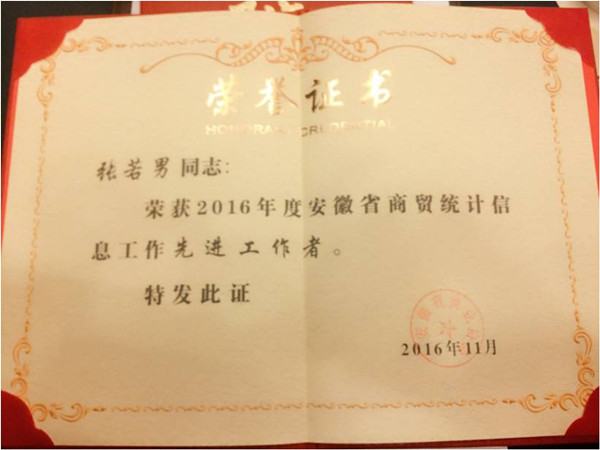 荣誉证书
HONORARY CREDENTIAL
张若男同志:
荣获2016年度安徽省商贸统计信
息工作先进工作者。
特发此证
2016年11月